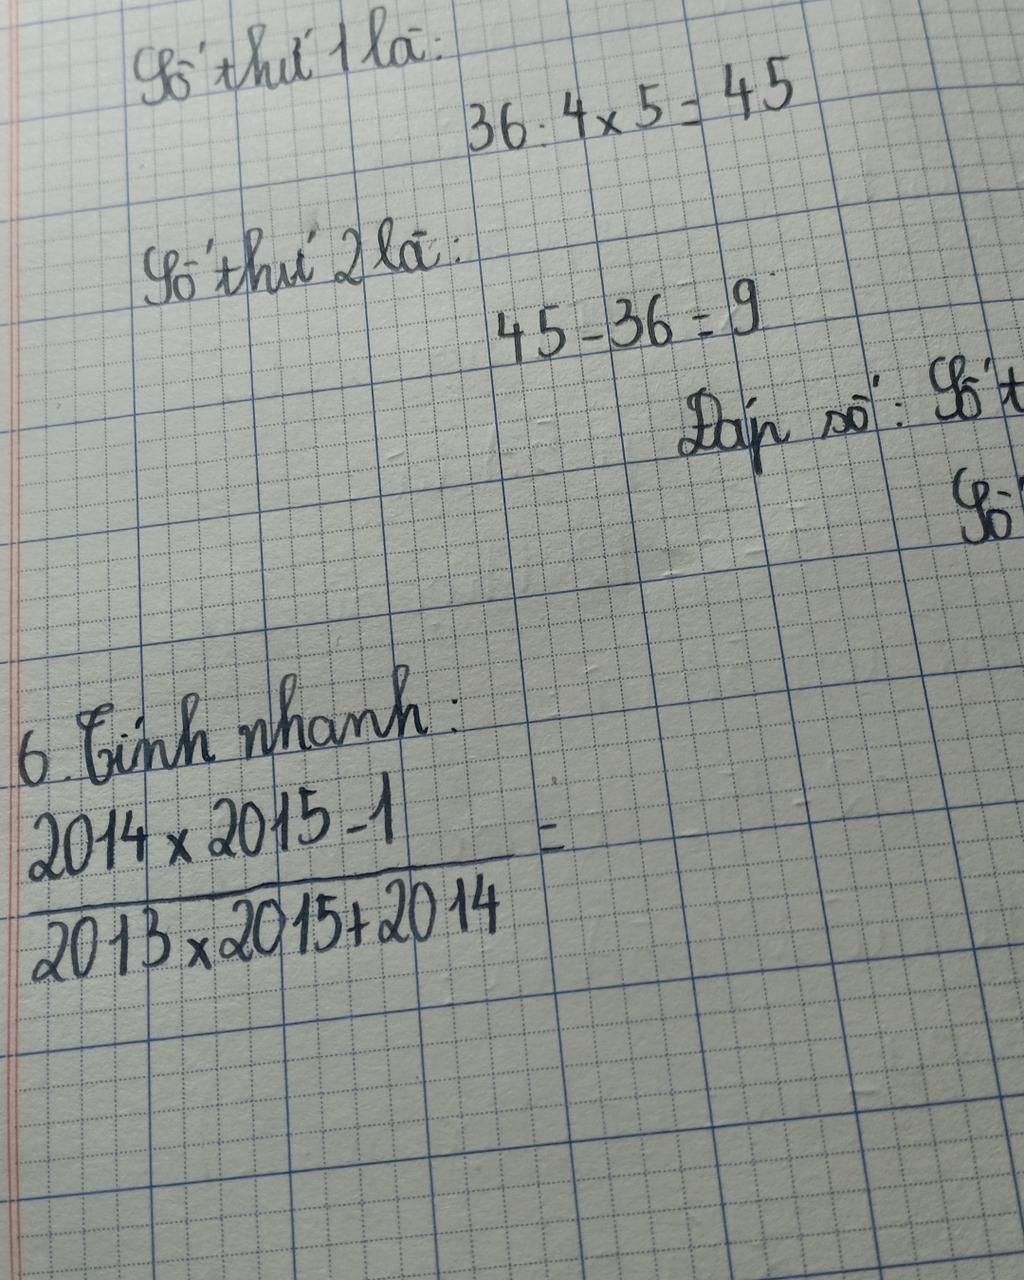 Số thứ 1 là:
36 : 4 x 5 = 45
Số thứ 2 là:
45 - 36 = 9
Đáp số: Số t
Số
6. Tính nhanh:
2014 x 2015 - 1 =
2013 x 2015 + 2014